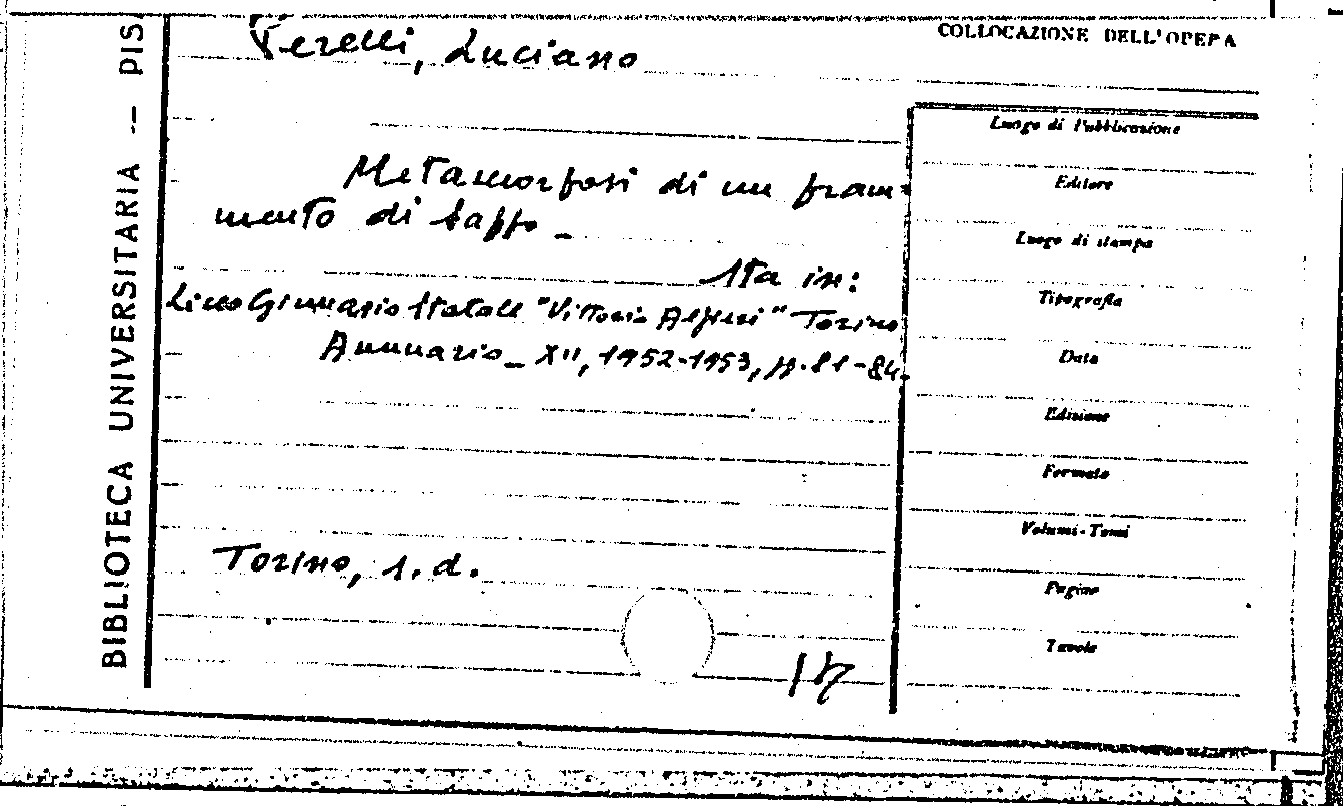 BIBLIOTECA UNIVERSITARIA -- PIS
Perelli, Luciano
COLLOCAZIONE DELL'OPERA
Metamorfosi di un fram-
mento di Saffo_
Sta in:
Liceo Ginnasio Statale "Vittorio Alfieri" Torino
Annuario_ XII, 1952-1953, pp. 81-84.
Torino, s.d.
Luogo di Pubblicazione
Editore
Luogo di stampa
Tipografia
Data
Edizione
Formato
Volumi-Tomi
Pagine
Tavole